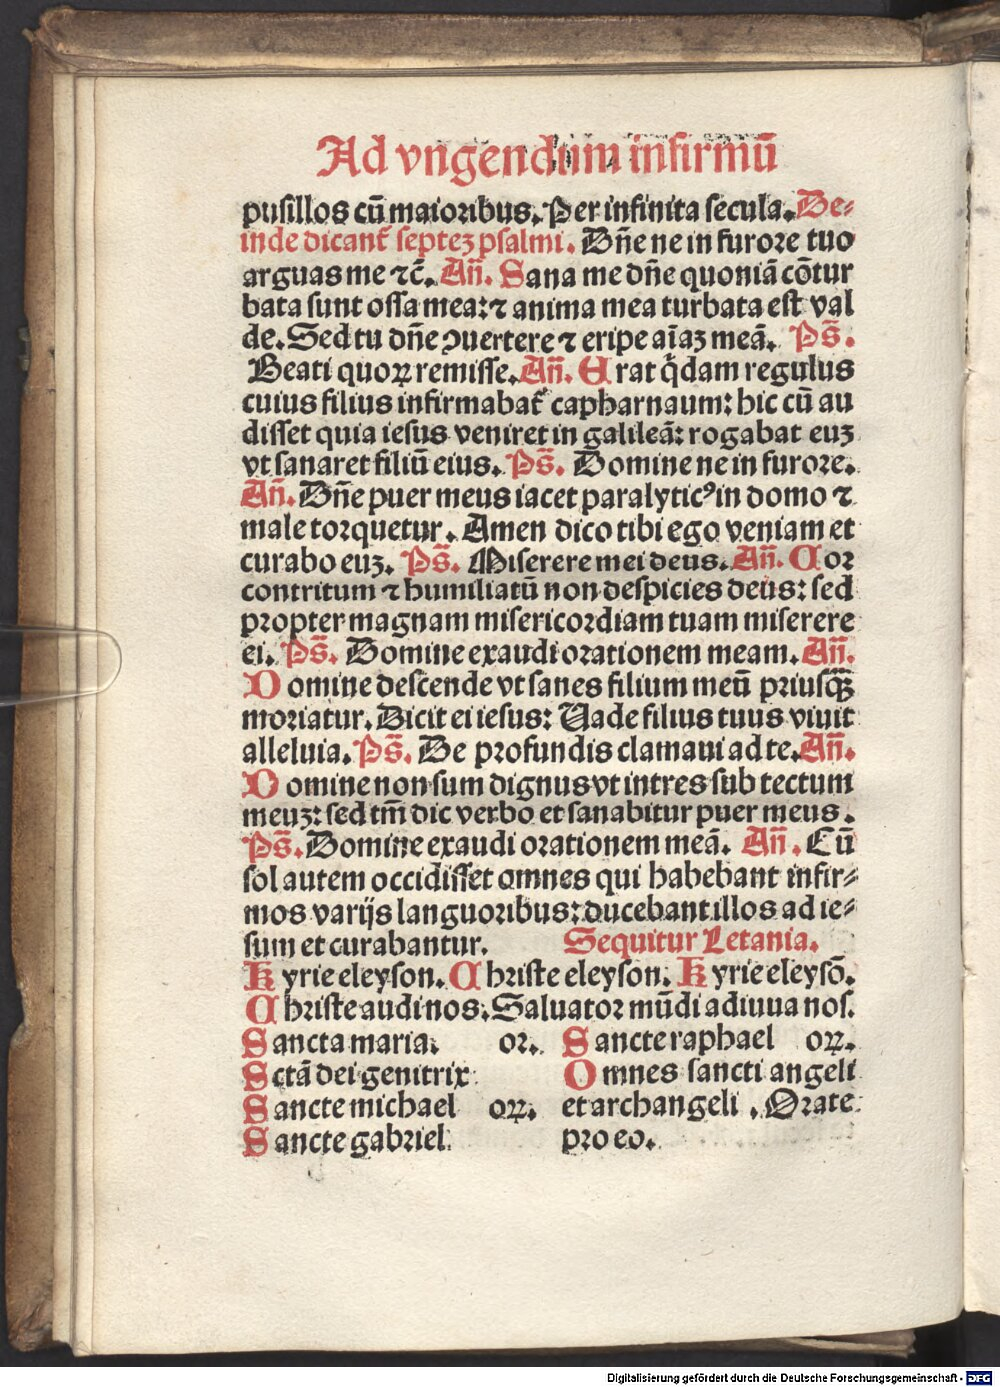 Ad vngendum infirmū
pusillos cū maioribus. Per infinita secula. De-
inde dicant̄ septeꝫ psalmi. Dn̄e ne in furore tuo
arguas me ⁊c̄. An̄. Sana me dn̄e quoniā cōtur
bata sunt ossa mea: ⁊ anima mea turbata est val
de. Sed tu dn̄e ↄuertere ⁊ eripe aīaꝫ meā. Ps̄.
Beati quoꝝ remisse. An̄. Erat q̄dam regulus
cuius filius infirmabat᷑ capharnaum: hic cū au
disset quia iesus veniret in galileā: rogabat euꝫ
vt sanaret filiū eius. Ps̄. Domine ne in furore.
An̄. Dn̄e puer meus iacet paralyticꝰ in domo ⁊
male torquetur. Amen dico tibi ego veniam et
curabo euꝫ. Ps̄. Miserere mei deus. An̄. Cor
contritum ⁊ humiliatū non despicies deus: sed
propter magnam misericordiam tuam miserere
ei. Ps̄. Domine exaudi orationem meam. An̄.
Domine descende vt sanes filium meū priusqꝫ̄
moriatur. Dicit ei iesus: Uade filius tuus viuit
alleluia. Ps̄. De profundis clamaui ad te. An̄.
Domine non sum dignus vt intres sub tectum
meuꝫ: sed tm̄ dic verbo et sanabitur puer meus.
Ps̄. Domine exaudi orationem meā. An̄. Cū
sol autem occidisset omnes qui habebant infir-
mos varijs languoribus: ducebant illos ad ie-
sum et curabantur. Sequitur Letania.
Kyrie eleyson. Christe eleyson. Kyrie eleysō.
Christe audi nos. Saluator mūdi adiuua nos.
Sancta maria. or.
Sctā dei genitrix
Sancte michael oꝝ.
Sancte gabriel
Sancte raphael oꝝ.
Omnes sancti angeli
et archangeli. Orate
pro eo.
Digitalisierung gefördert durch die Deutsche Forschungsgemeinschaft - DFG